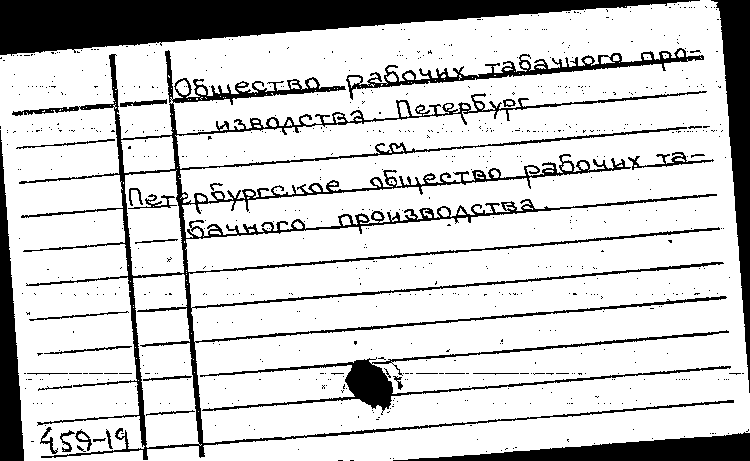 Общество рабочих табачного про-
изводства. Петербург
см.
Петербургское общество рабочих та-
бачного производства.
459-19